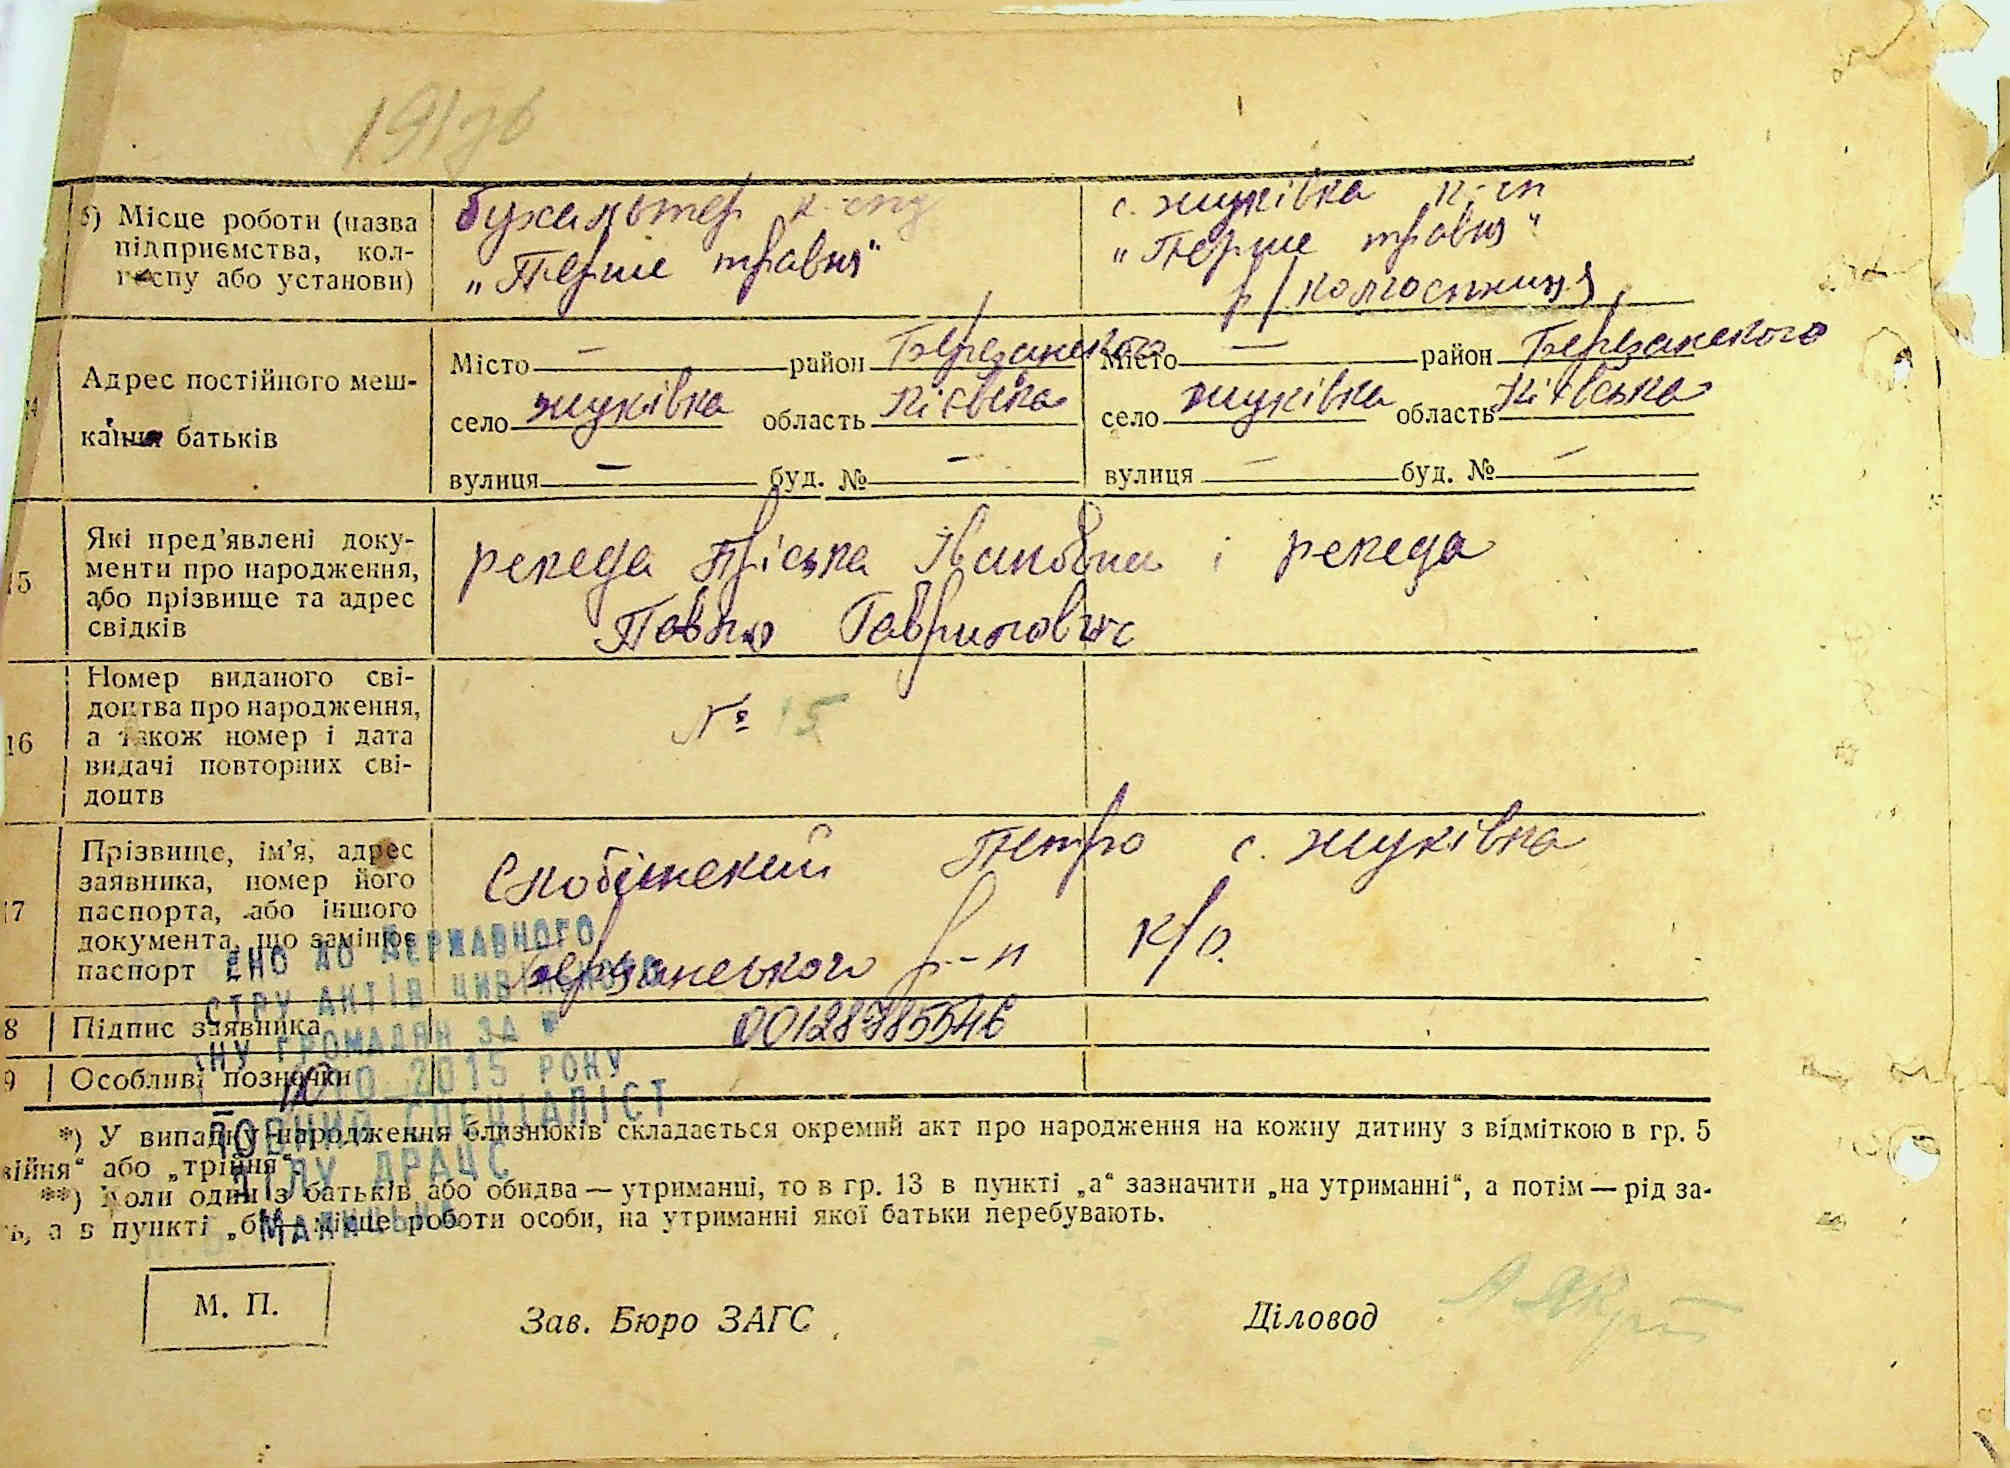 б) Місце роботи (назва підприємства, колгоспу або установи)
бухальтер к-спу
„Перше травня“
с. Жуківка к-сп
„Перше травня“
р/колгоспниця
Адрес постійного мешкання батьків
Місто — район Березанського
село Жуківка область Київська
вулиця — буд. № —
Місто — район Березанського
село Жуківка область Київська
вулиця — буд. № —
15
Які пред’явлені документи про народження, або прізвище та адрес свідків
Рекеда Пріська Івановна і Рекеда
Павло Гаврилович
16
Номер виданого свідоцтва про народження, а також номер і дата видачі повторних свідоцтв
№ 15
17
Прізвище, ім’я, адрес заявника, номер його паспорта, або іншого документа, що замінює паспорт
Петро с. Жуківка
Березанського р-н к/о.
8
Підпис заявника
00128785546
9
Особливі позначки
ЕНО ДО ДЕРЖАВНОГО
СТРУ АКТІВ ЦИВІЛЬНОГО
НУ ГРОМАДЯН ЗА №
10 2015 РОКУ
ПОВНИЙ СПЕЦІАЛІСТ
ДІЛУ ДРАЦС
*) У випадку народження близнюків складається окремий акт про народження на кожну дитину з відміткою в гр. 5
війня“ або „трійня“.
**) Коли один з батьків або обидва — утриманці, то в гр. 13 в пункті „а“ зазначити „на утриманні“, а потім — рід за-
ь, а в пункті „б“ — місце роботи особи, на утриманні якої батьки перебувають.
М. П.
Зав. Бюро ЗАГС
Діловод